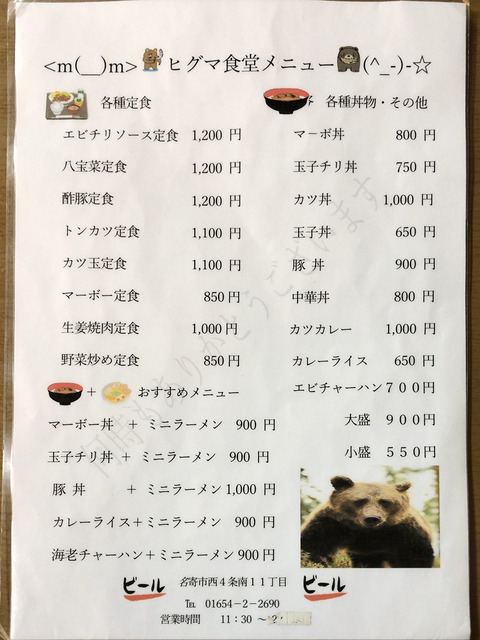 <m(__)m> ヒグマ食堂メニュー (^_-)-☆
各種定食
エビチリソース定食 1,200 円
八宝菜定食 1,200 円
酢豚定食 1,200 円
トンカツ定食 1,100 円
カツ玉定食 1,100 円
マーボー定食 850円
生姜焼肉定食 1,000円
野菜炒め定食 850円
+ おすすめメニュー
マーボー丼 + ミニラーメン 900 円
玉子チリ丼 + ミニラーメン 900 円
豚 丼 + ミニラーメン 1,000 円
カレーライス+ミニラーメン 900 円
海老チャーハン+ミニラーメン900円
各種丼物・その他
マーボ丼 800 円
玉子チリ丼 750 円
カツ丼 1,000 円
玉子丼 650 円
豚 丼 900 円
中華丼 800 円
カツカレー 1,000 円
カレーライス 650 円
エビチャーハン700円
大盛 900円
小盛 550円
ビール 名寄市西4条南11丁目 ビール
℡ 01654-2-2690
営業時間 11:30 ~
ありがとうございます